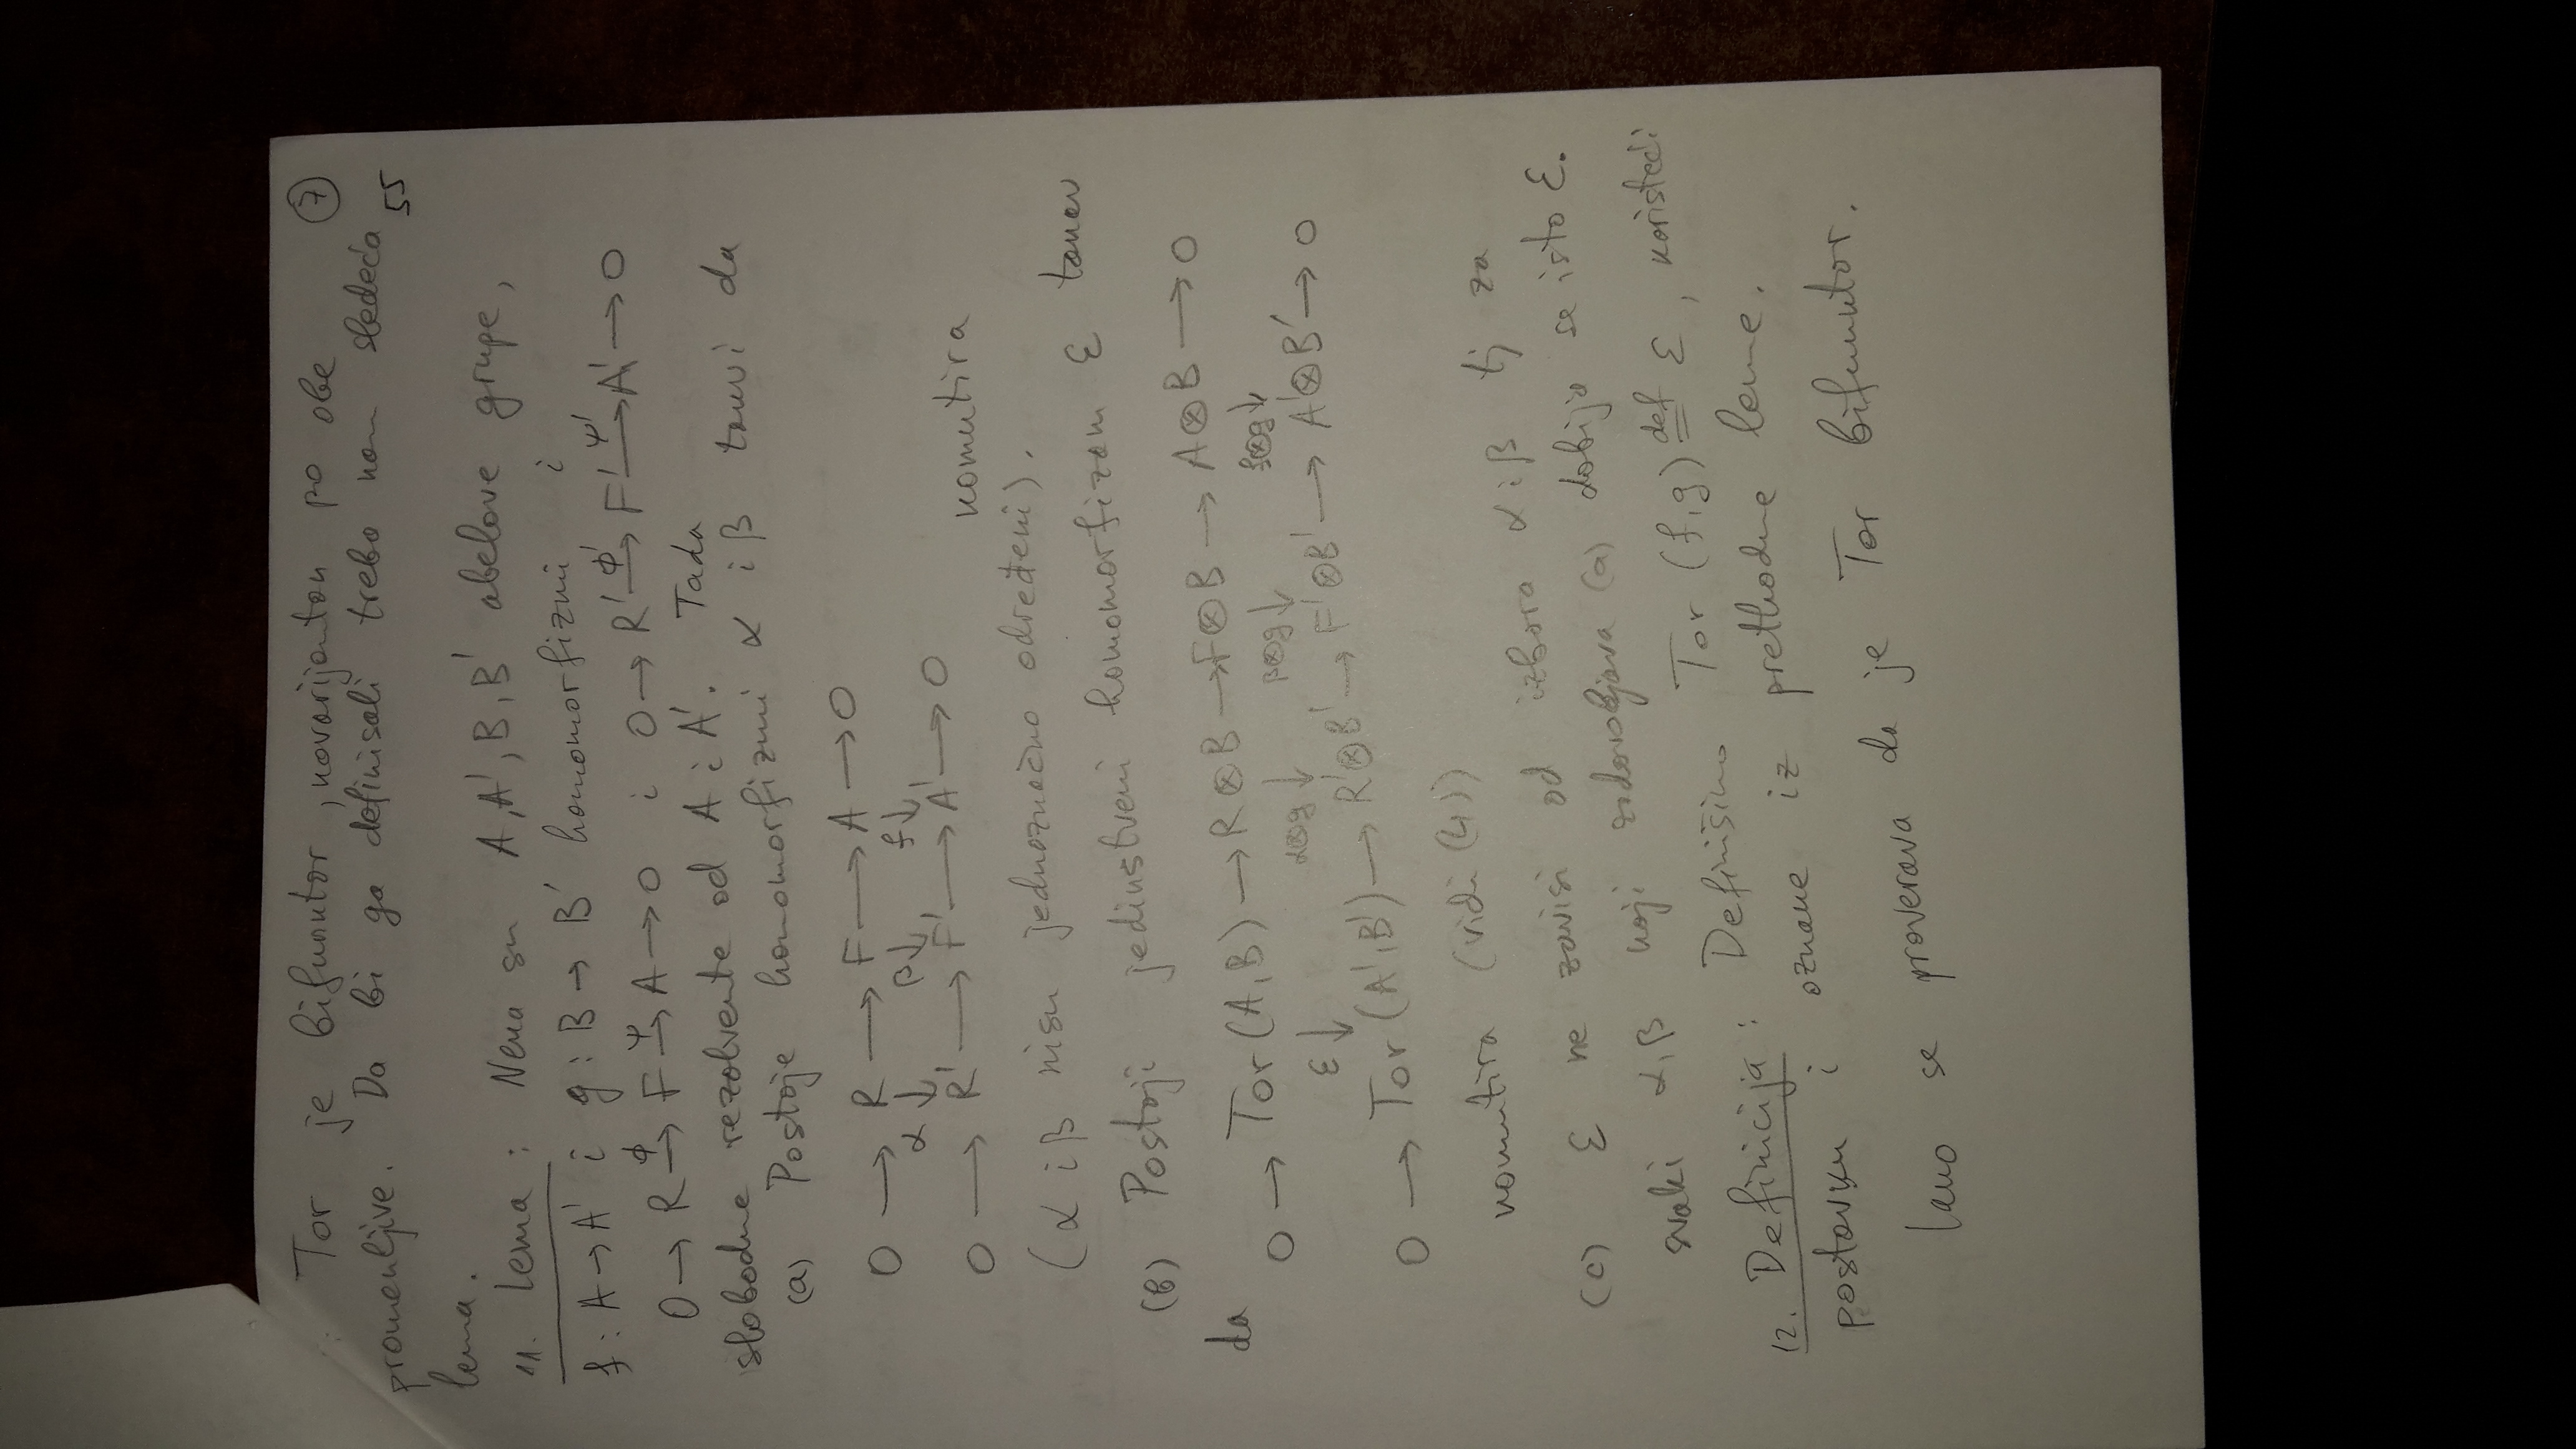 Tor je bifunktor, kovarijantan po obe ⑦
promenljive. Da bi ga definisali treba nam sledeća 55
lema.
11. Lema: Neka su A, A', B, B' abelove grupe,
f: A → A' i g: B → B' homomorfizmi i
0 → R —ϕ→ F —ψ→ A → 0 i 0 → R' —ϕ'→ F' —ψ'→ A' → 0
slobodne rezolvente od A i A'. Tada
(a) Postoje homomorfizmi α i β takvi da
0 → R → F → A → 0
α↓ β↓ f↓
0 → R' → F' → A' → 0 komutira
(α i β nisu jednoznačno određeni).
(b) Postoji jedinstveni homomorfizam ε takav
da
0 → Tor(A,B) → R⊗B → F⊗B → A⊗B → 0
ε↓ α⊗g↓ β⊗g↓ f⊗g↓
0 → Tor(A',B') → R'⊗B' → F'⊗B' → A'⊗B' → 0
komutira (vidi (4))
(c) ε ne zavisi od izbora α i β tj za
svaki α, β koji zadovoljava (a) dobija se isto ε.
12. Definicija: Definišimo Tor (f,g) def= ε, koristeći
postavku i oznake iz prethodne leme.
Lako se proverava da je Tor bifunktor.